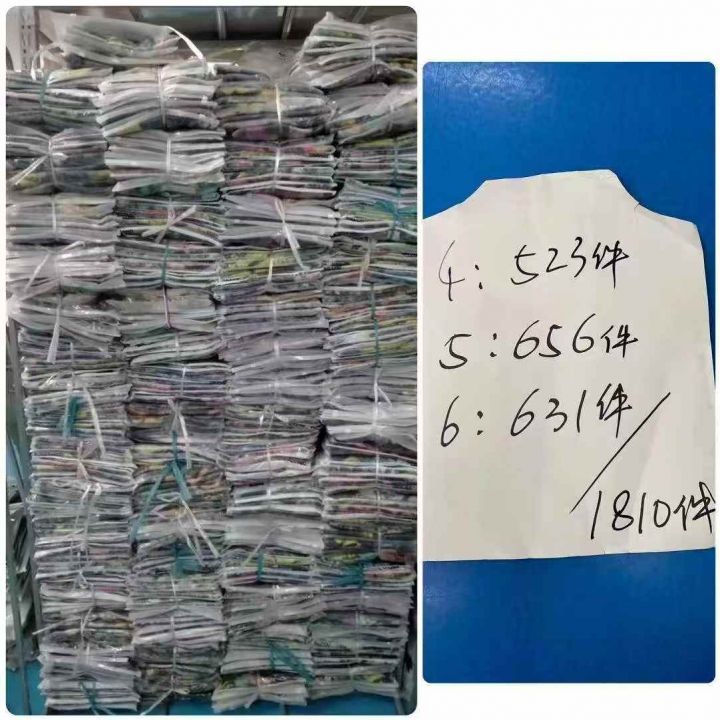 4：523件
5：656件
6：631件
1810件